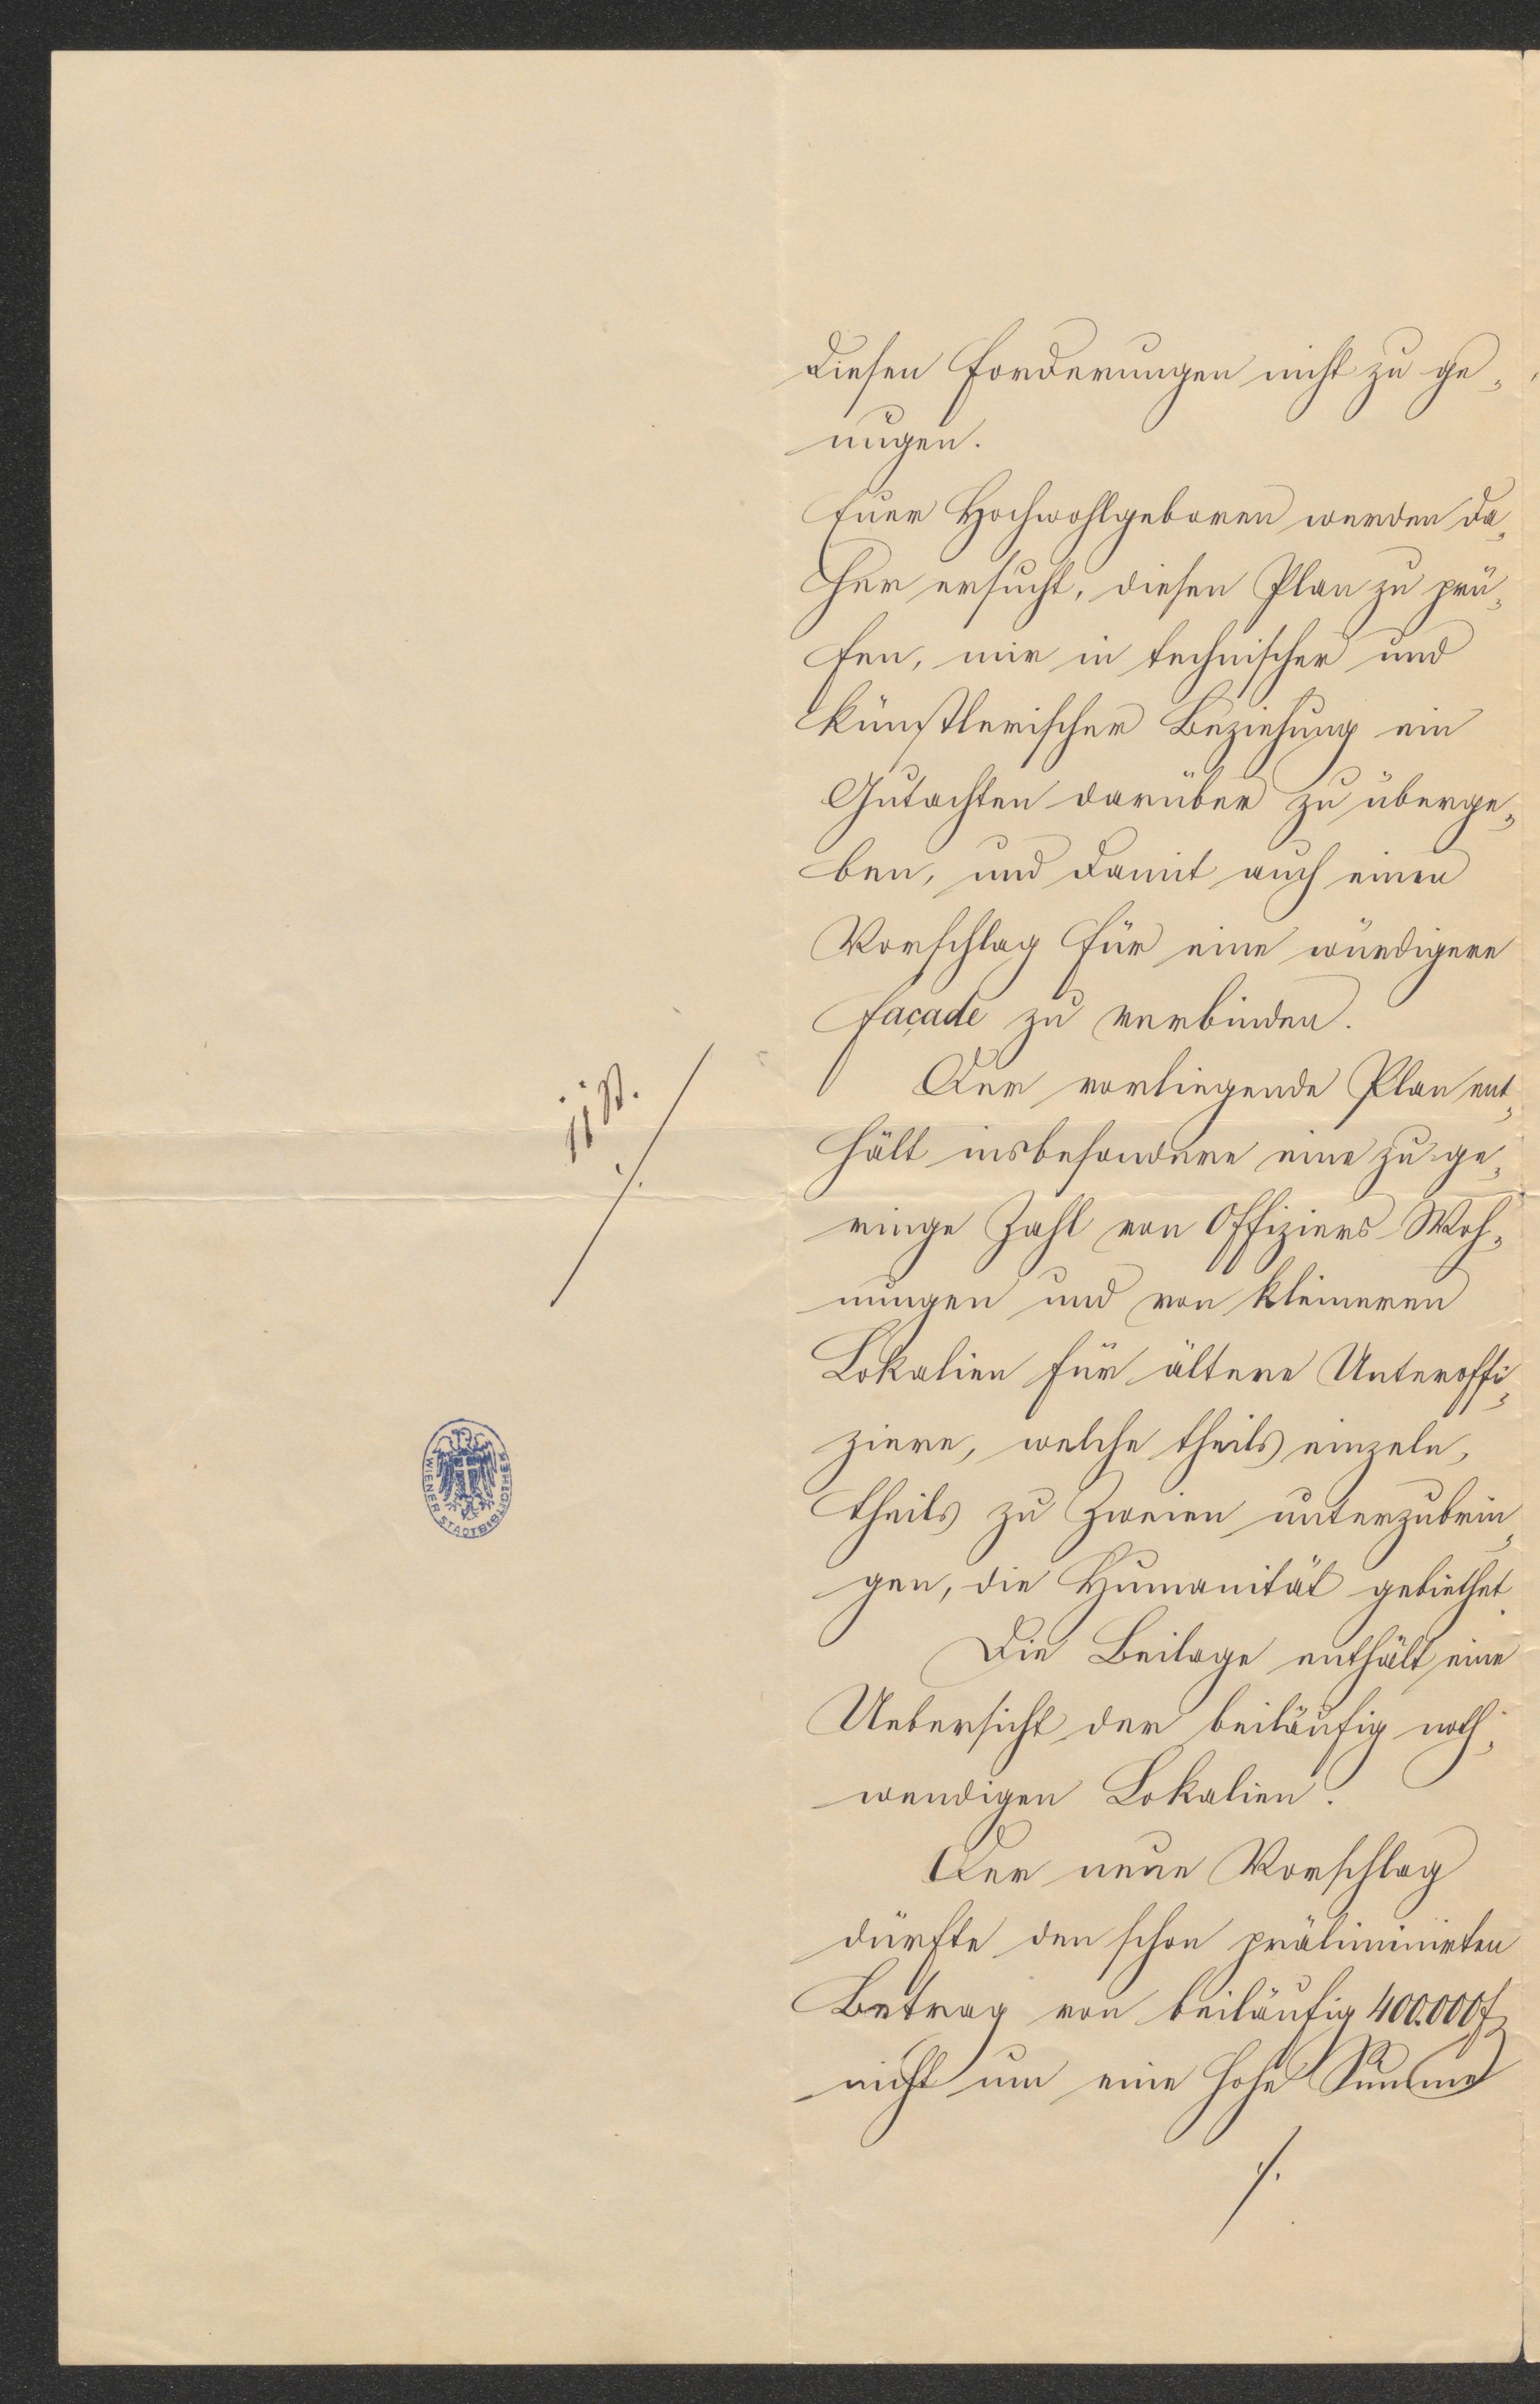 diesen Forderungen nicht zu ge„
nügen.
Euer Hochwohlgeboren werden da„
her ersucht, diesen Plan zu prü„
fen, mir in technischer und
künstlerischer Beziehung ein
Gutachten darüber zu überge„
ben, und damit auch einen
Vorschlag für eine würdigere
façade zu verbinden.
Der vorliegende Plan ent„
hält insbesondere eine zu ge„
ringe Zahl von Offiziers Woh„
nungen und von kleineren
Lokalien für ältere Unteroffi„
ziere, welche theils einzeln,
theils zu Zweien unterzubrin„
gen, die Humanität gebiethet.
Die Beilage enthält eine
Uebersicht der beiläufig noth„
wendigen Lokalien.
Der neue Vorschlag
dürfte den schon präliminirten
Betrag von beiläufig 400.000 f
nicht um eine hohe Summe
./.
WIENER STADTBIBLIOTHEK